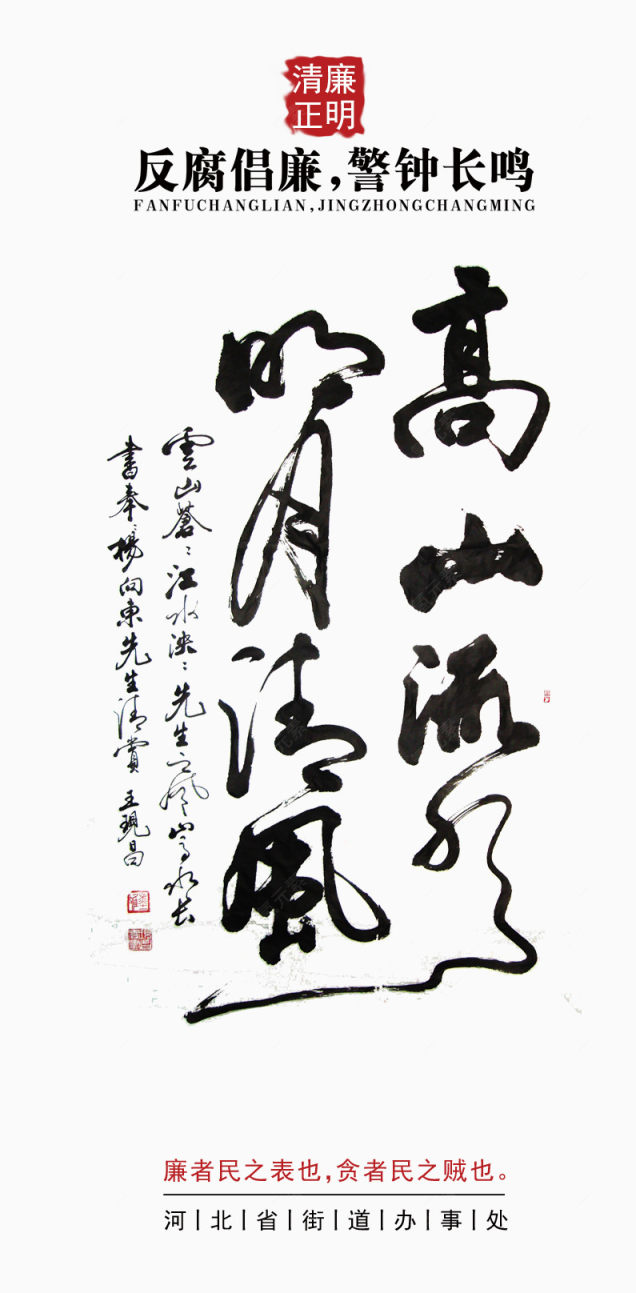 清廉
正明
反腐倡廉，警钟长鸣
FANFUCHANGLIAN,JINGZHONGCHANGMING
高山流水
明月清風
雲山蒼〻江水泱〻先生之风山高水长
書奉楊向東先生清賞 王現昌
廉者民之表也，贪者民之贼也。
河|北|省|街|道|办|事|处